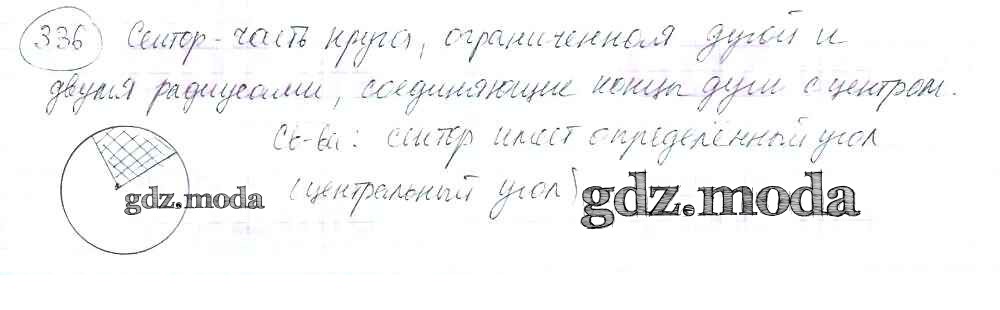 336 Сектор - часть круга, ограниченная дугой и
двумя радиусами, соединяющие концы дуги с центром.
Св-ва: сектор имеет определённый угол
(центральный угол)
gdz.moda
gdz.moda